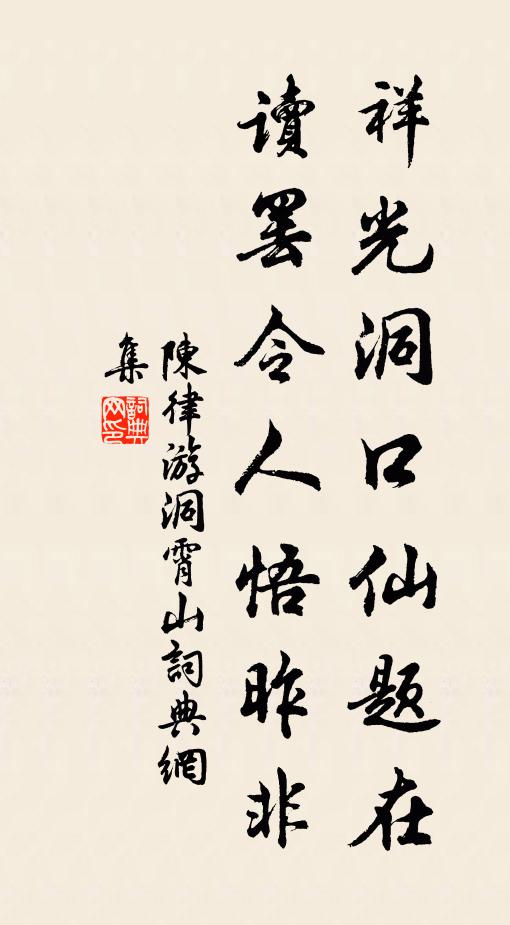 祥光洞口仙题在
讀罢令人悟昨非
陳律游洞霄山詞典網
集
詞典
网印